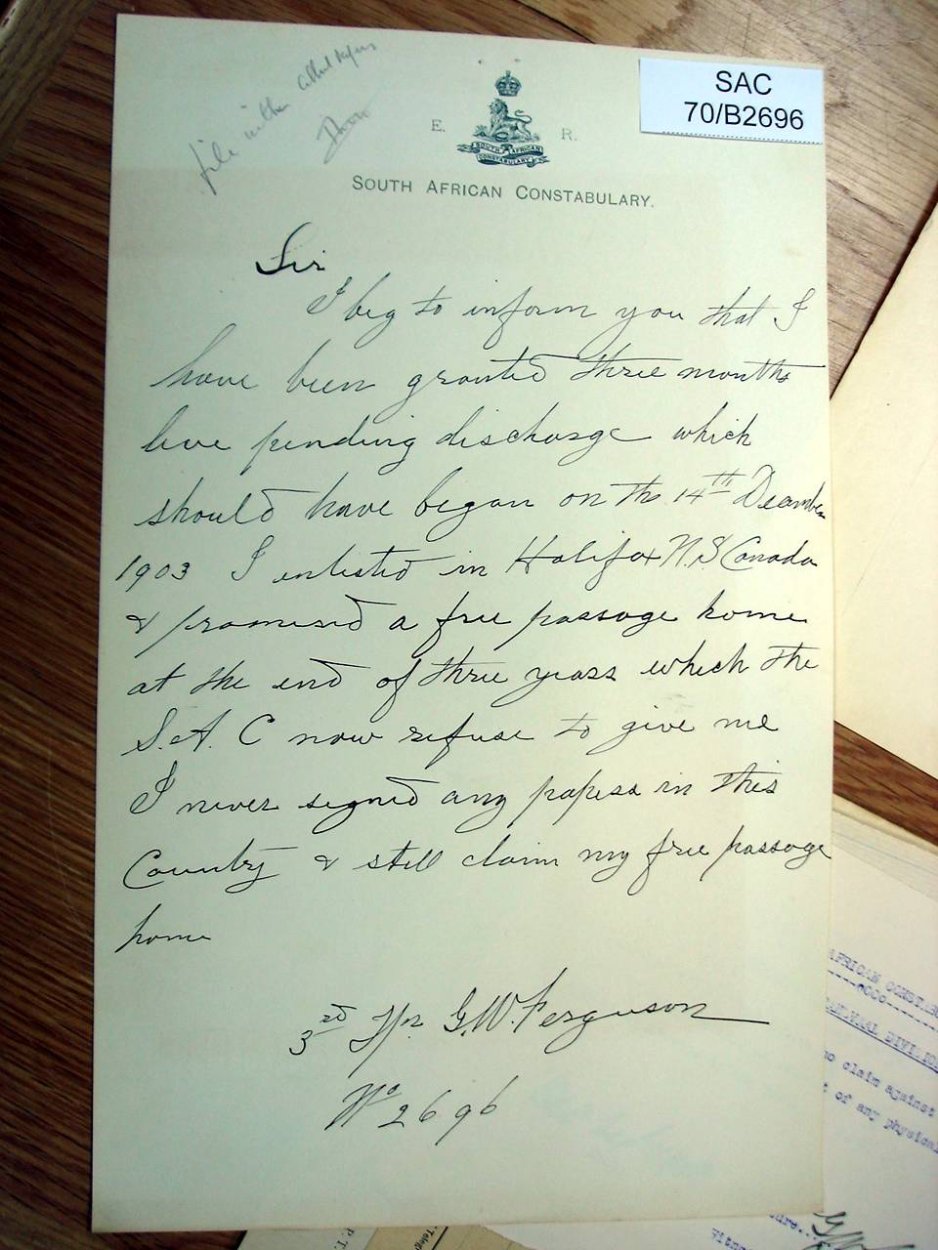 SAC
70/B2696
file
E. R.
SOUTH AFRICAN
CONSTABULARY
SOUTH AFRICAN CONSTABULARY.
Sir
I beg to inform you that I
have been granted three months
leve pending discharge which
should have began on the 14TH December
1903 I enlisted in Halifax N.S Canada
& promised a free passage home
at the end of three years which the
S.A. C now refuse to give me
I never signed any papers in this
Country & still claim my free passage
home
3rd Tpr G.W. Ferguson
No 2696
AFRICAN CONSTAB
o claim against
t of any physical